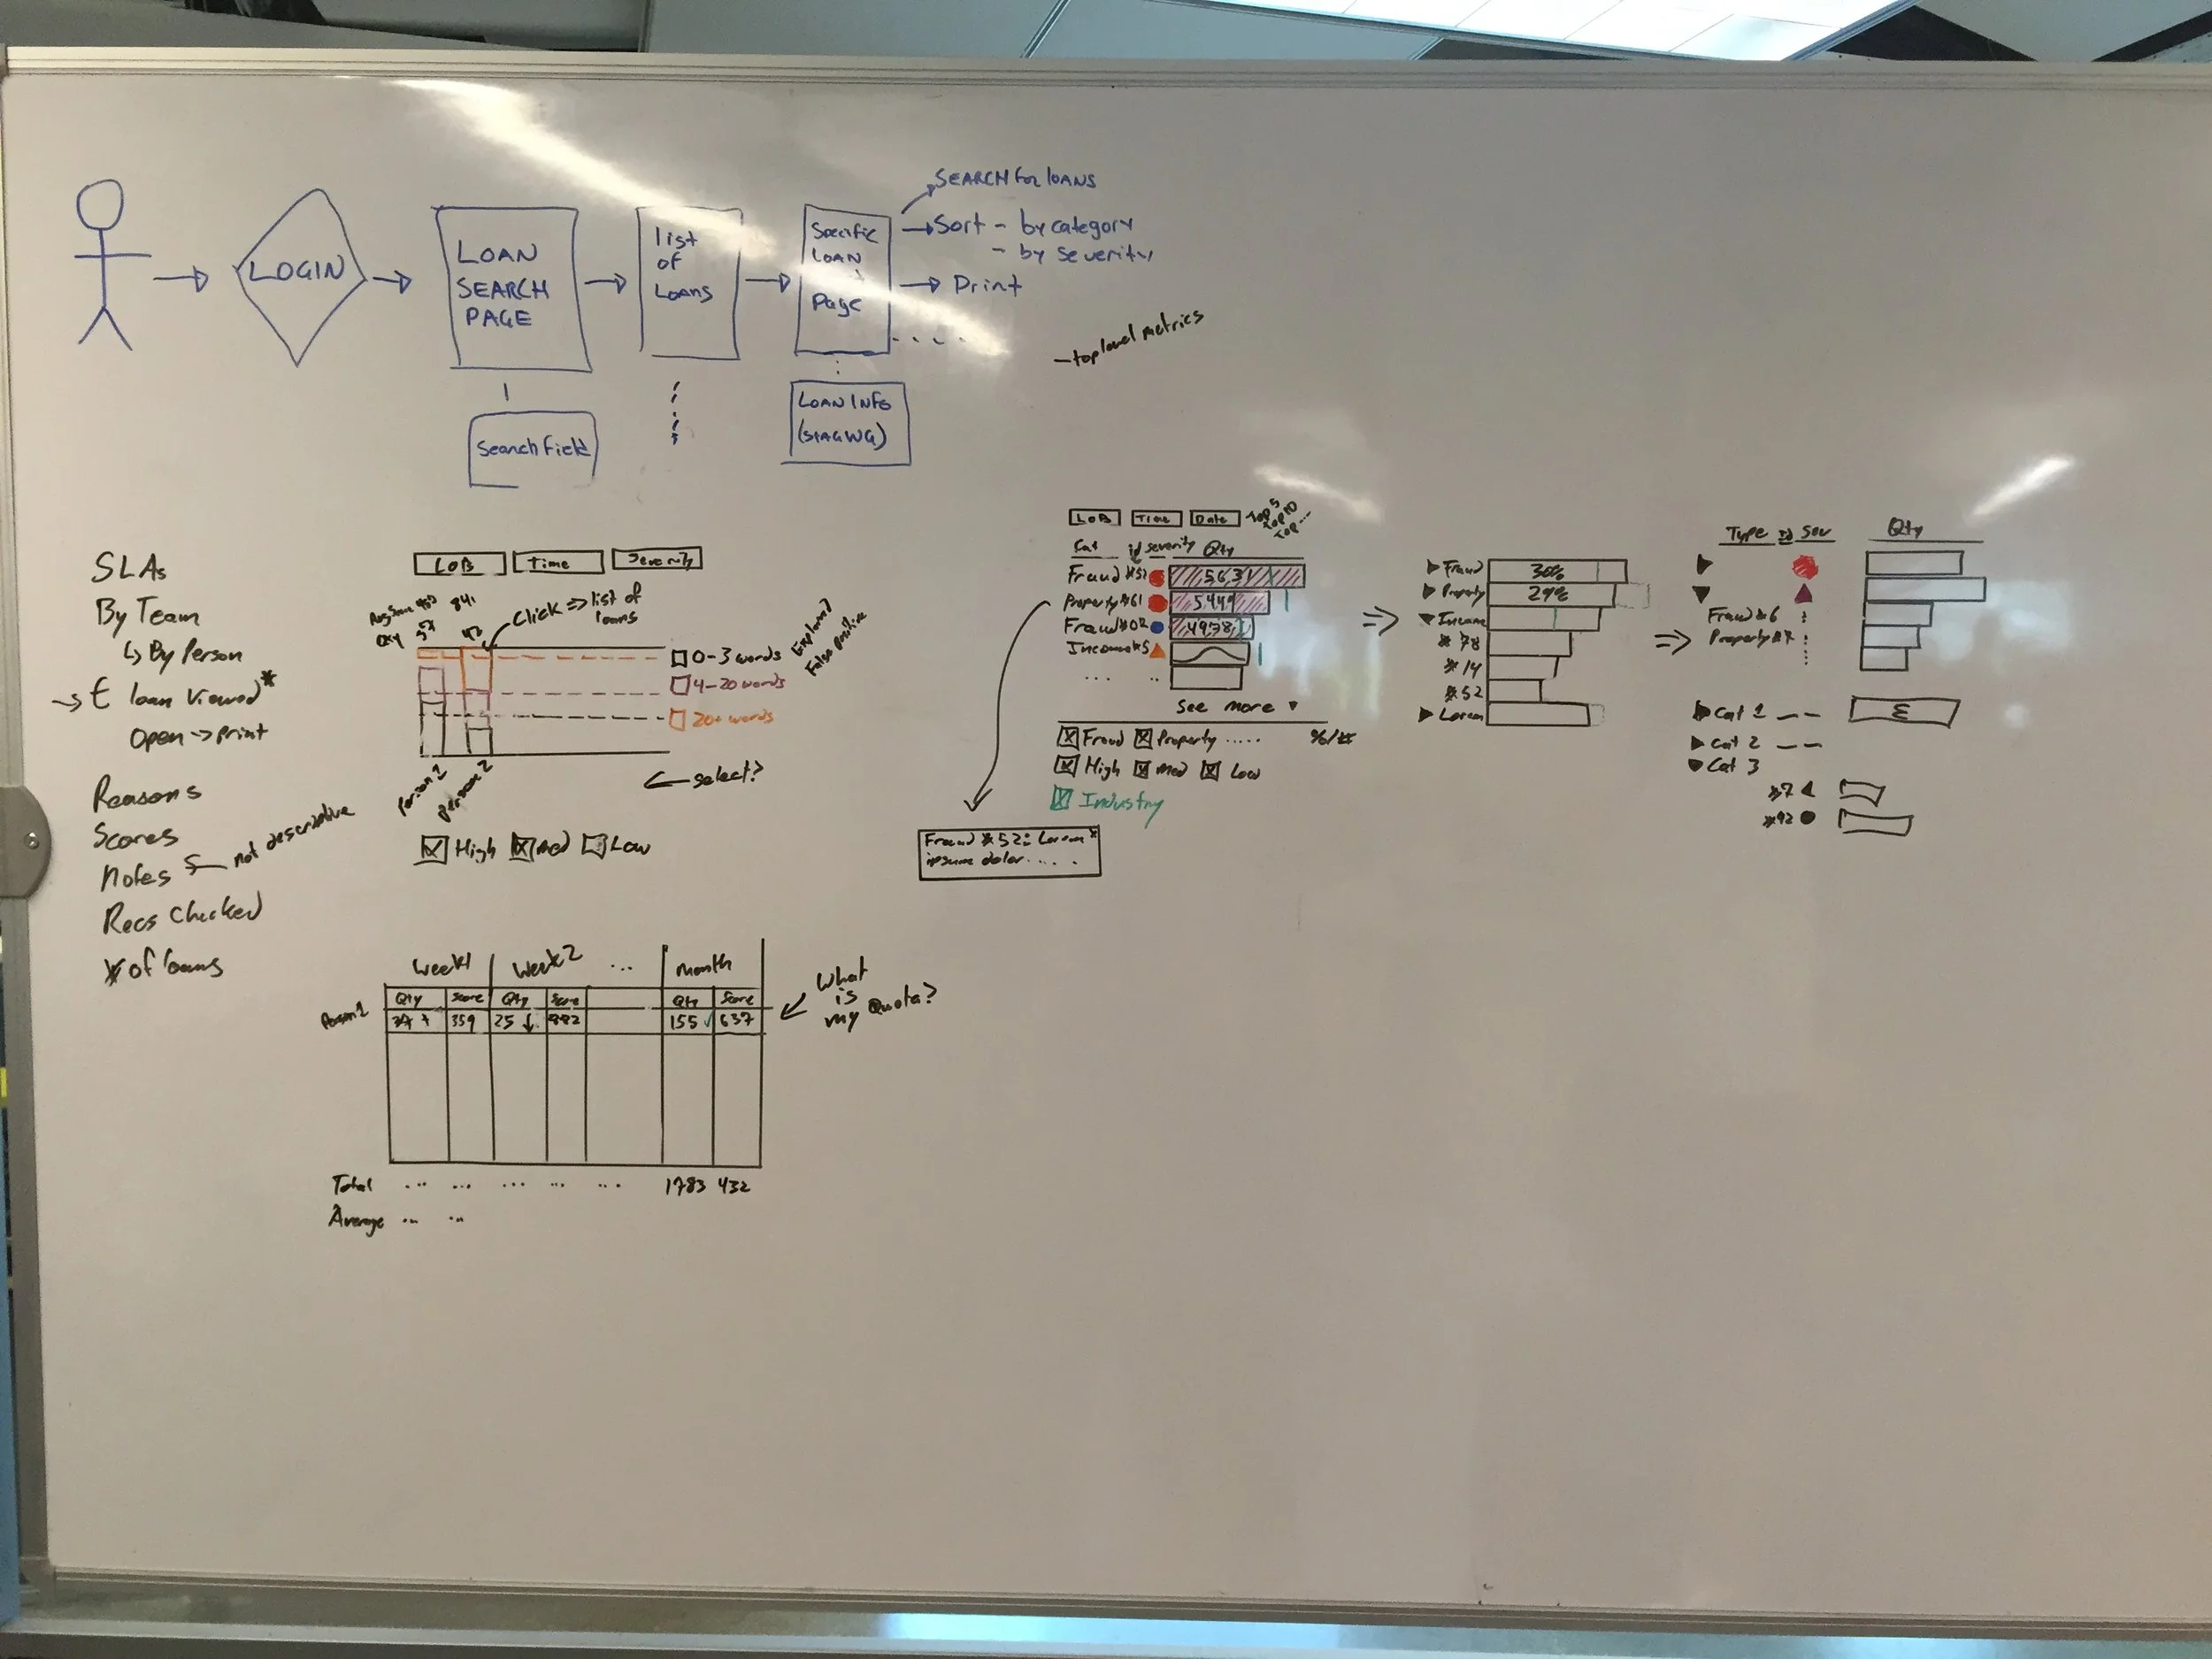 LOGIN
LOAN
SEARCH
PAGE
Search Field
list
of
Loans
Specific
LOAN
Page
LOAN INFO
SEARCH for loans
Sort - by category
- by severity
Print
- top level metrics
SLAs
By Team
↳ By Person
→ loan viewed*
Open → print
Reasons
Scores
Notes ← not descriptive
Recs Checked
# of loans
LOB Time Severity
Qty
Click => list of
loans
0-3 words
4-20 words
20+ words
Explained
False positive
person 1
person 2
← select?
High Med Low
week 1 week 2 ... month
Qty Score Qty Score Qty Score
Person 1
359 25 ↓ 155 637
What
is
my Quota?
Total ... ... ... ... ... 1783 432
Average ... ...
LOB Time Date
Top 5
Top 10
Top ...
Cat id severity Qty
Fraud #52 5,631
Property #61 5,449
Fraud #02
Income #5
.... ..
See more
Fraud Property ..... %/#
High Med Low
Industry
Fraud #52: Lorem
ipsum dolor.....
Fraud 30%
Property 29%
Income
#78
#14
#52
Lorem
Type id Sev Qty
Fraud #6
Property #7
Cat 1 -- Σ
Cat 2 --
Cat 3
#7
#92